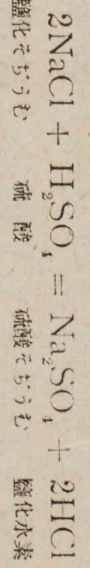 2NaCl + H₂SO₄ = Na₂SO₄ + 2HCl
鹽化そぢうむ 硫酸 硫酸そぢうむ 鹽化水素